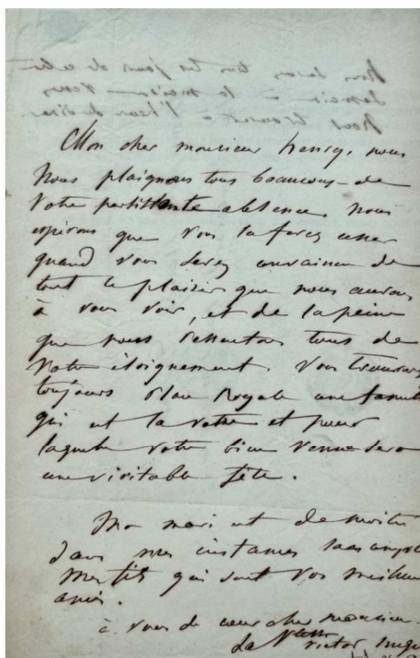 Mon cher monsieur henry, nous
nous plaignons tous beaucoup de
votre persistante absence, nous
espérons que vous la ferez cesser
quand vous serez convaincu de
tout le plaisir que nous aurons
à vous voir, et de la peine
que nous ressentons tous de
votre éloignement. Vous trouverez
toujours place Royale une famille
qui est la votre et pour
laquelle votre bien venue sera
une véritable fête.
Mon mari est de moitié
dans mes instances sans compter
mes fils qui sont vos meilleurs
amis.
à vous de coeur cher monsieur.
La Vtesse victor hugo